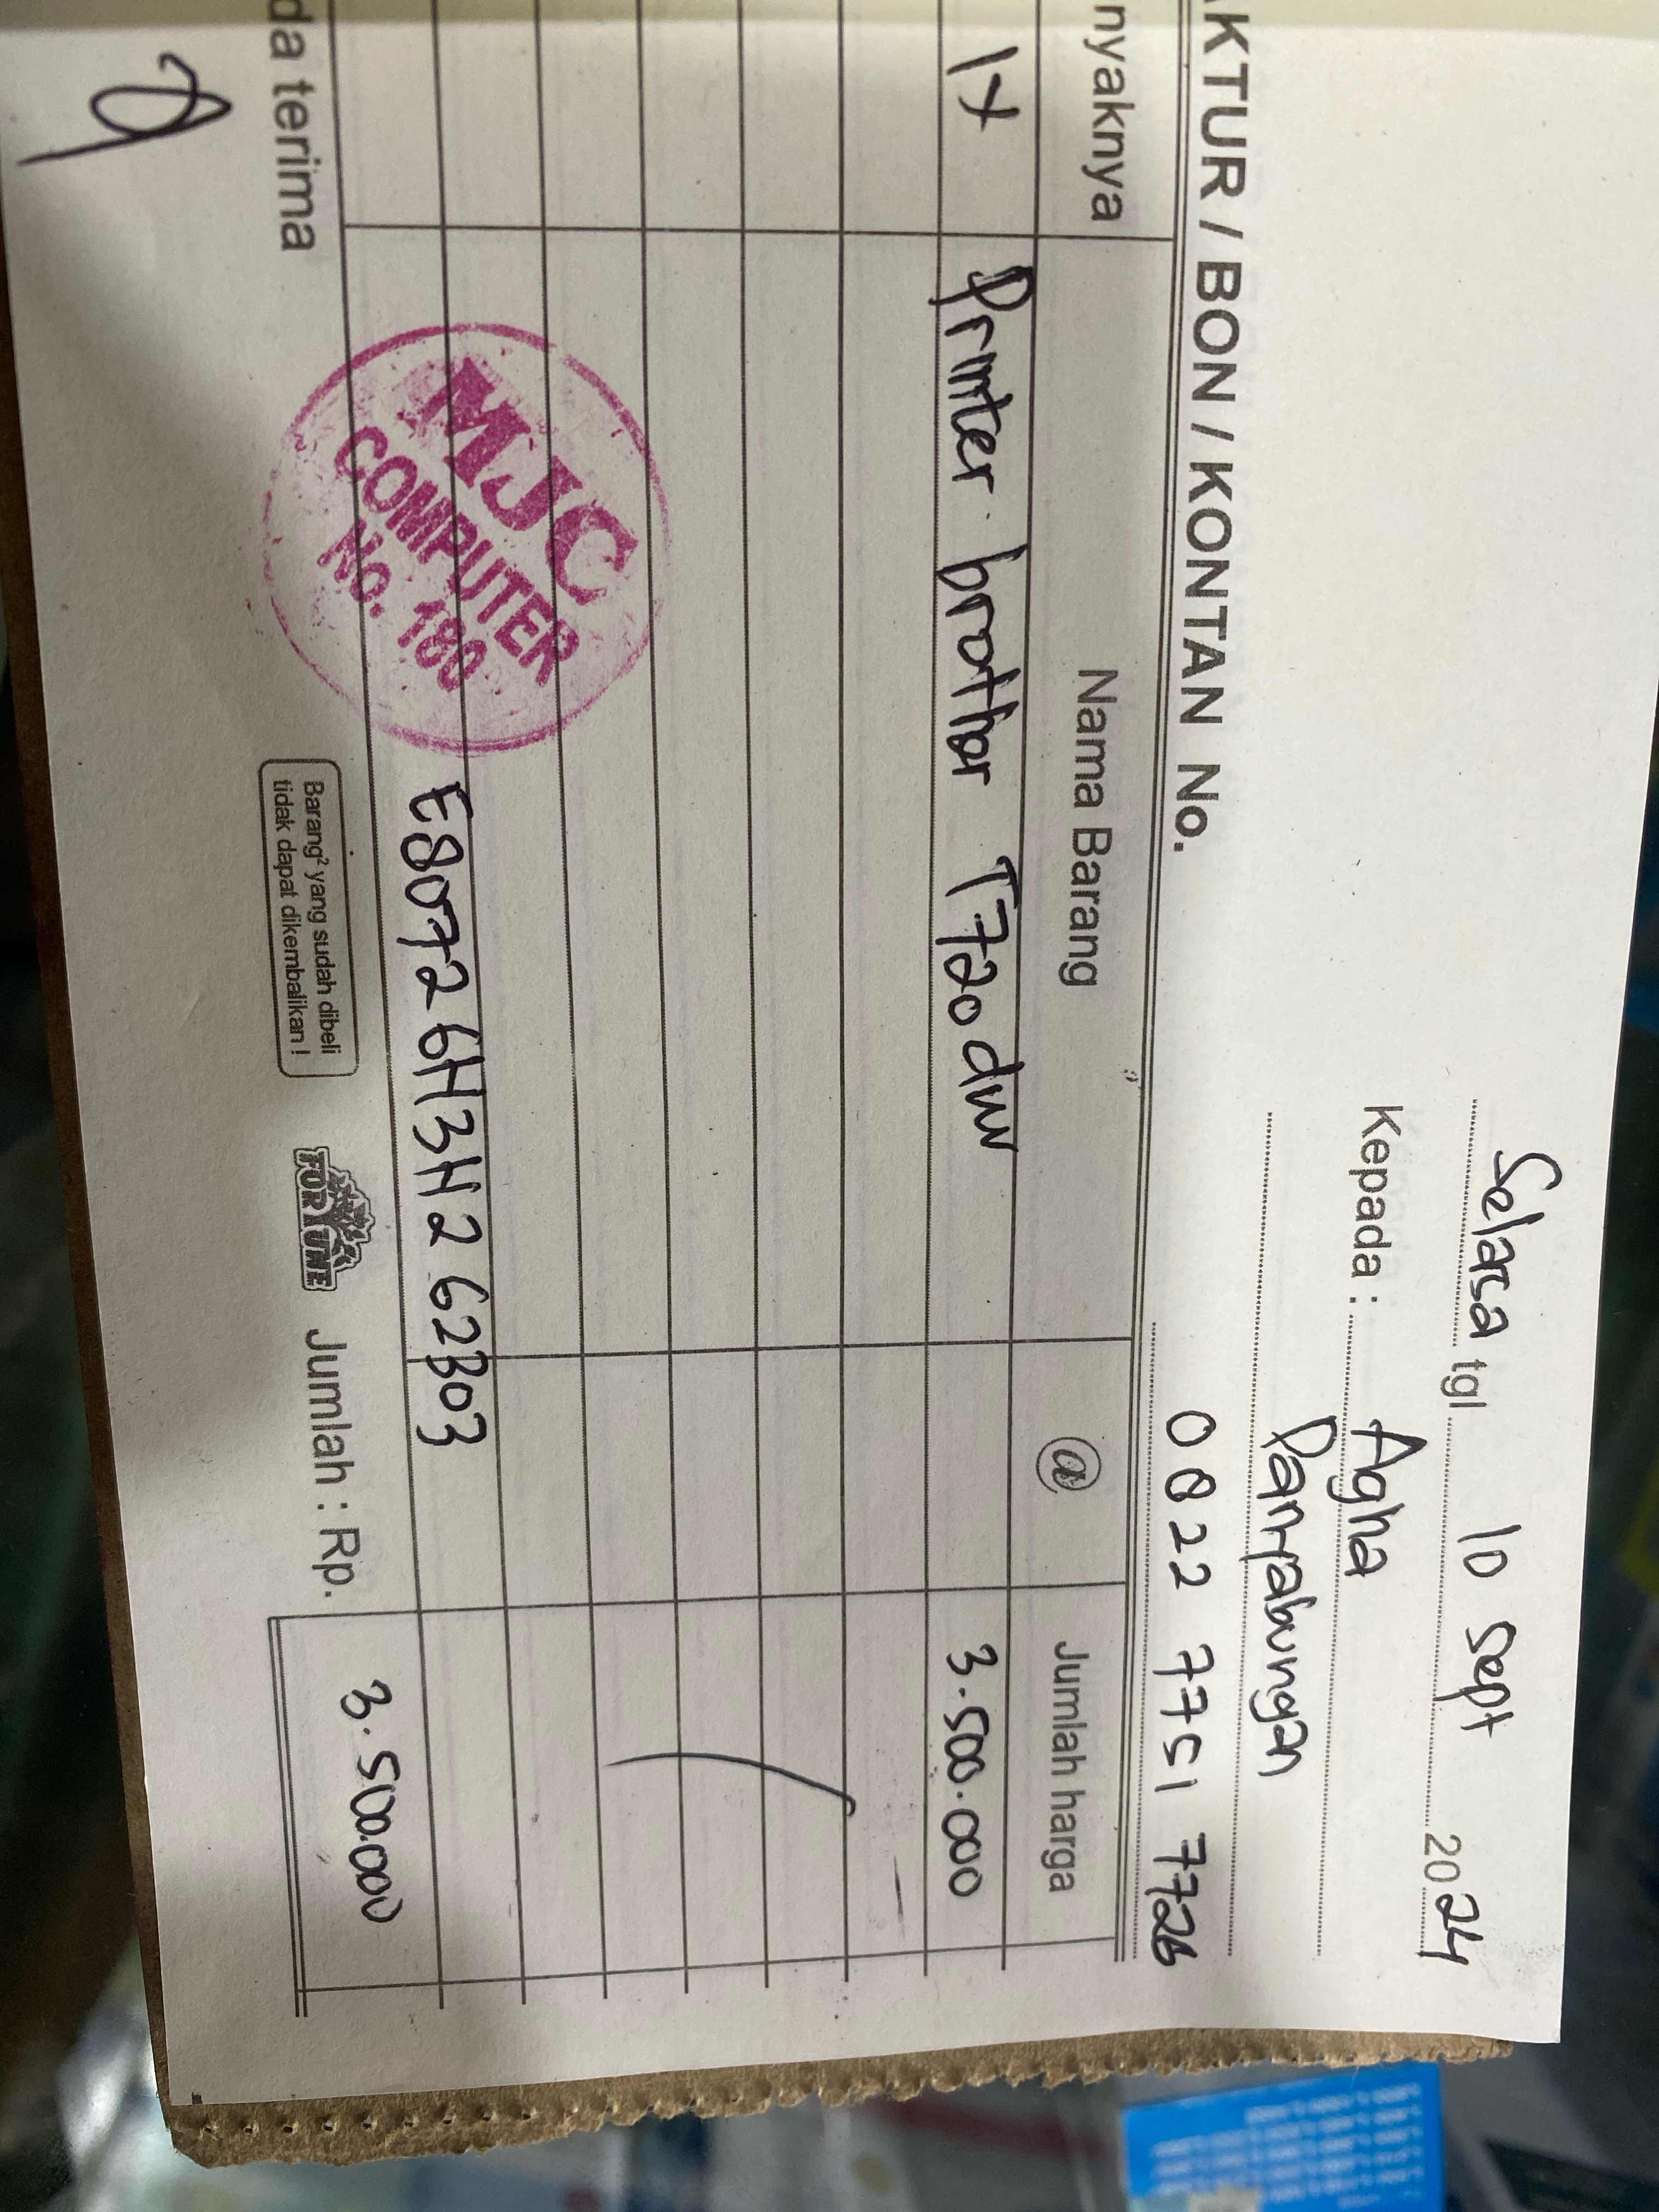 Selasa tgl 10 sept 2024
Kepada : Agha
Panyabungan
KTUR / BON / KONTAN No. 0822 7751 7726
nyaknya Nama Barang @ Jumlah harga
1x Printer brother T720dw 3.500.000
MJC
COMPUTER
No. 180
E80726H3N262303
da terima
Barang² yang sudah dibeli
tidak dapat dikembalikan !
FORTUNE
Jumlah : Rp. 3.500.000